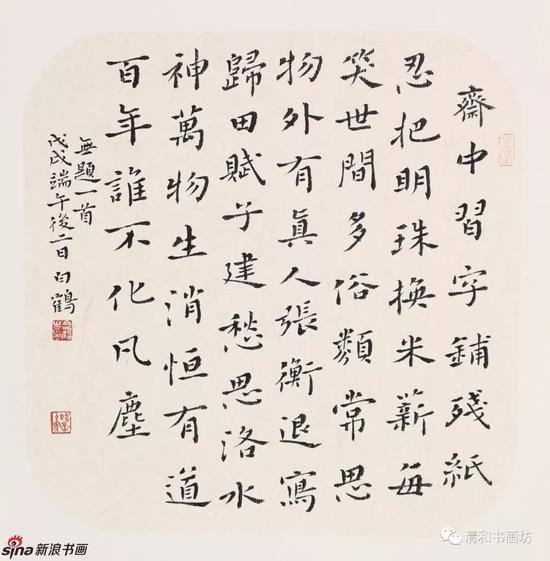 齋中習字鋪殘紙
忍把明珠換米薪每
笑世間多俗類常思
物外有真人張衡退寫
歸田賦子建愁思洛水
神萬物生消恒有道
百年誰不化凡塵
無題一首
戊戌端午後二日白鶴
sina新浪书画
清和书画坊